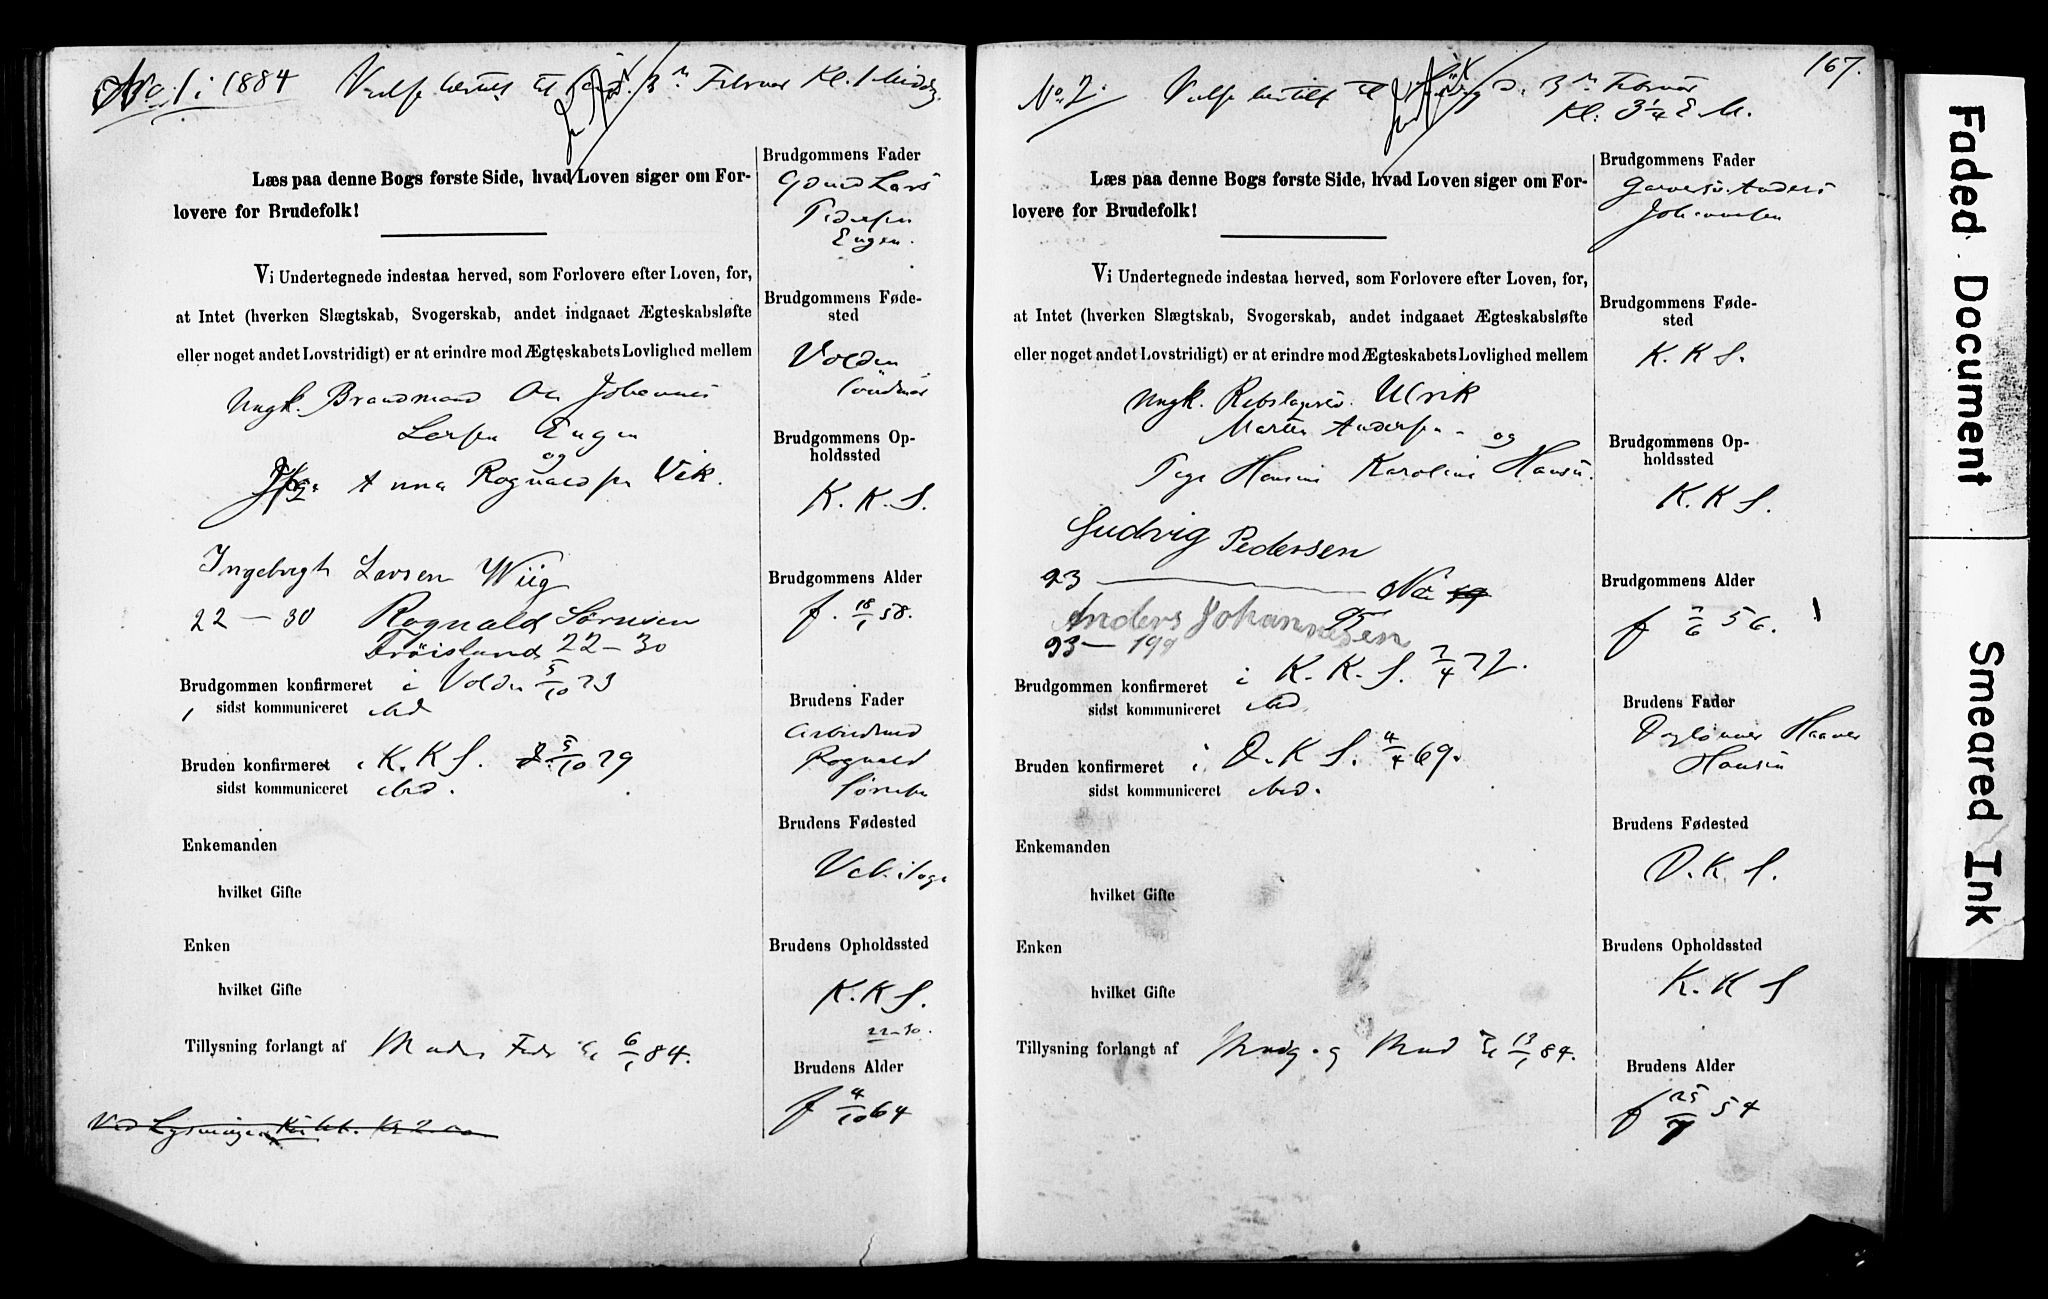 No. 1 i 1884 Vielse bestilt til d. 3 Februar Kl. 1 Middg.
Læs paa denne Bogs første Side, hvad Loven siger om For-
lovere for Brudefolk!
Vi Undertegnede indestaa herved, som Forlovere efter Loven, for,
at Intet (hverken Slægtskab, Svogerskab, andet indgaaet Ægteskabsløfte
eller noget andet Lovstridigt) er at erindre mod Ægteskabets Lovlighed mellem
Ungk. Brandmand Ole Johannes
Larsen Engen
og
Anna Rognaldsen Vik.
Ingebrigt Larsen Wiig
22 — 30 Rognald Sørnsen
Frøisland 22 — 30
Brudgommen konfirmeret i Volden 5/10 73
sidst kommuniceret ibid
Bruden konfirmeret i K. K S. 5/10 79
sidst kommuniceret ibid.
Enkemanden
hvilket Gifte
Enken
hvilket Gifte
Tillysning forlangt af Brudens Fader 6/1 84.
Ved Lysningen Kr 2.00
Brudgommens Fader
Gmd Lars
Pedersen
Engen.
Brudgommens Føde-
sted
Volden
Søndmør
Brudgommens Op-
holdssted
K. K. S.
Brudgommens Alder
f. 18/1 58.
Brudens Fader
Arbeidsmd
Rognald
Sørnsen
Brudens Fødested
Brudens Opholdssted
K. K S.
22-30.
Brudens Alder
f 4/10 64
167.
No. 2. Vielse bestilt til d. 3 Februar
Kl. 3 1/4 E M.
Læs paa denne Bogs første Side, hvad Loven siger om For-
lovere for Brudefolk!
Vi Undertegnede indestaa herved, som Forlovere efter Loven, for,
at Intet (hverken Slægtskab, Svogerskab, andet indgaaet Ægteskabsløfte
eller noget andet Lovstridigt) er at erindre mod Ægteskabets Lovlighed mellem
Ungk. Rebslagersv. Ulrik
Martin Andersen og
Pige Hansine Karoline Hansen.
Ludvig Pedersen
93 — No 19
95
Anders Johannesen
93 — 199
Brudgommen konfirmeret i K. K. S. 7/4 72.
sidst kommuniceret ibid
Bruden konfirmeret i D. K S. 4/4 69.
sidst kommuniceret ibid.
Enkemanden
hvilket Gifte
Enken
hvilket Gifte
Tillysning forlangt af Brudg. og Brud 13/1 84.
Brudgommens Fader
Garversv. Anders
Johannesen
Brudgommens Føde-
sted
K. K S.
Brudgommens Op-
holdssted
K. K S.
Brudgommens Alder
f 7/6 56.
Brudens Fader
Daglønner Haaver
Hansen
Brudens Fødested
D. K S.
Brudens Opholdssted
K. K S
Brudens Alder
f 25/7 54
Faded Document
Smeared Ink